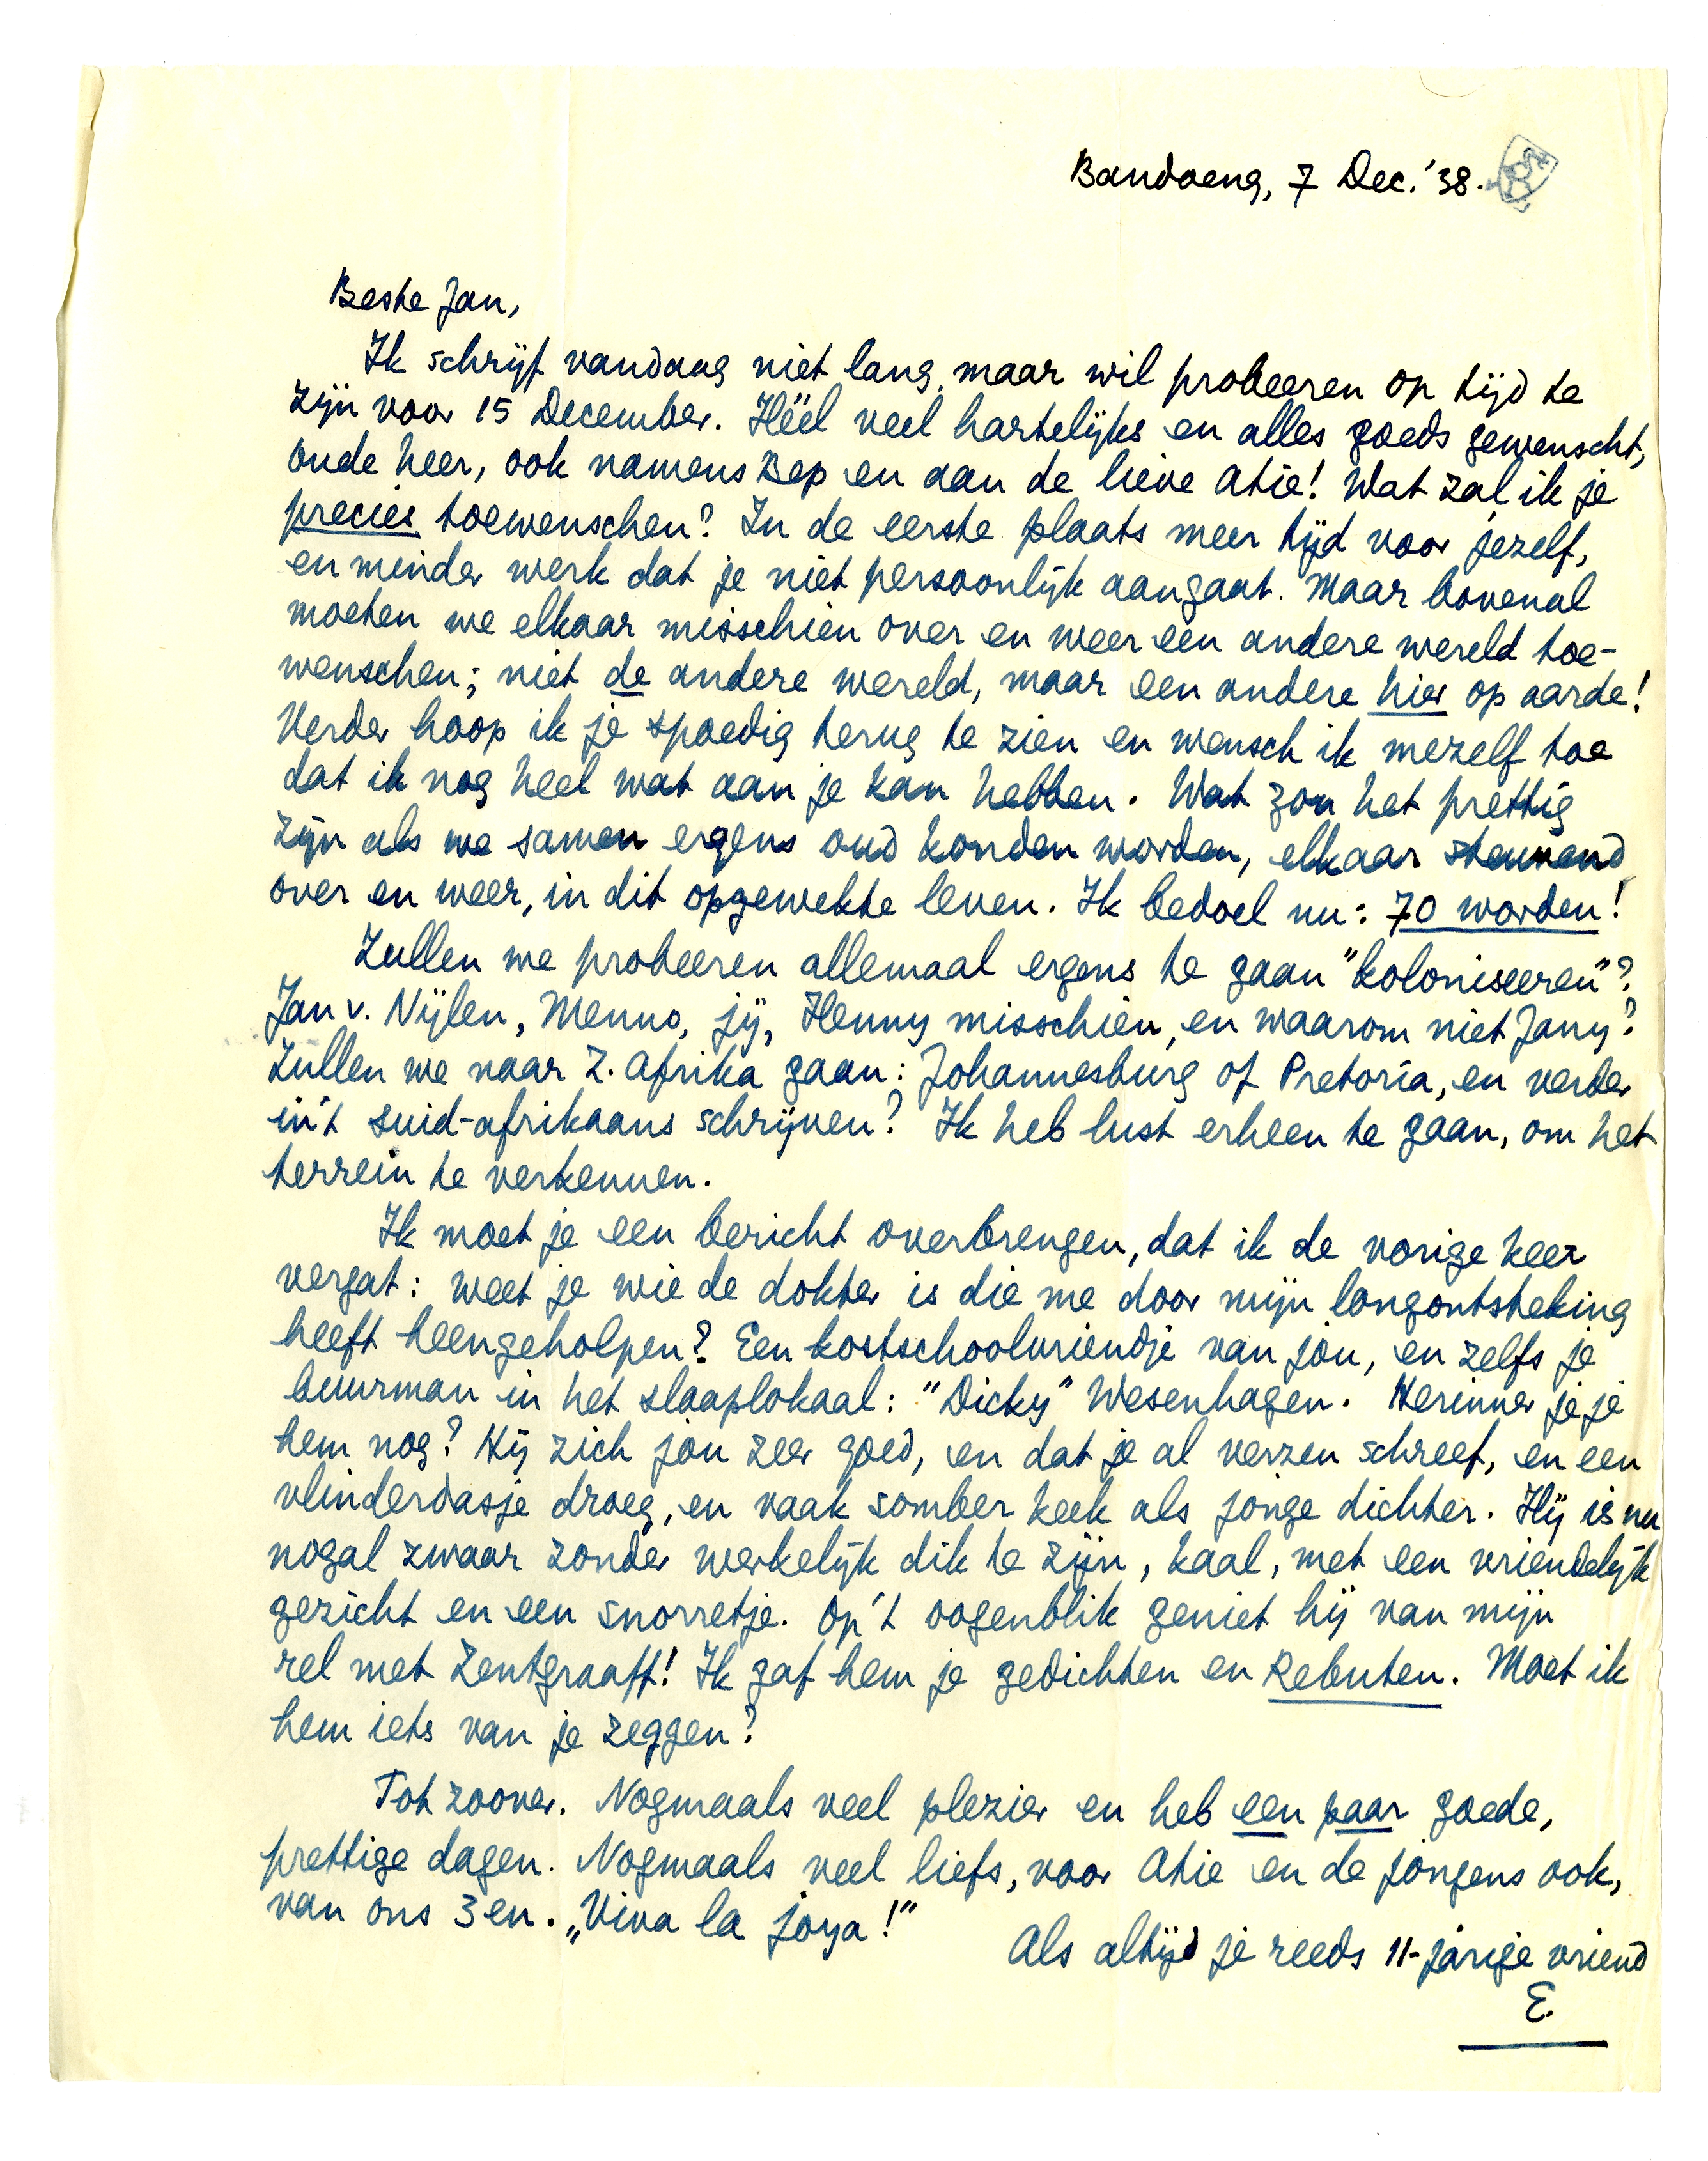 Bandoeng, 7 Dec. '38.
Beste Jan,
Ik schrijf vandaag niet lang, maar wil probeeren op tijd te
zijn voor 15 December. Héél veel hartelijks en alles goeds gewenscht,
oude heer, ook namens Bep en aan de lieve Atie! Wat zal ik je
precies toewenschen? In de eerste plaats meer tijd voor jezelf,
en minder werk dat je niet persoonlijk aangaat. Maar bovenal
moeten we elkaar misschien over en weer een andere wereld toe-
wenschen; niet de andere wereld, maar een andere hier op aarde!
Verder hoop ik je spoedig terug te zien en wensch ik mezelf toe
dat ik nog heel wat aan je kan hebben. Wat zou het prettig
zijn als we samen ergens oud konden worden, elkaar steunend
over en weer, in dit opgewekte leven. Ik bedoel nu: 70 worden!
Zullen we probeeren allemaal ergens te gaan "koloniseeren"?
Jan v. Nijlen, Menno, jij, Henny misschien, en waarom niet Jany?
Zullen we naar Z. Afrika gaan: Johannesburg of Pretoria, en verder
in't suid-afrikaans schrijven? Ik heb lust erheen te gaan, om het
terrein te verkennen.
Ik moet je een bericht overbrengen, dat ik de vorige keer
vergat: weet je wie de dokter is die me door mijn longontsteking
heeft heengeholpen? Een kostschoolvriendje van jou, en zelfs je
buurman in het slaaplokaal: "Dicky" Wesenhagen. Herinner je je
hem nog? Hij zich jou zeer goed, en dat je al verzen schreef, en een
vlinderdasje droeg, en vaak somber keek als jonge dichter. Hij is nu
nogal zwaar zonder werkelijk dik te zijn, kaal, met een vriendelijk
gezicht en een snorretje. Op 't oogenblik geniet hij van mijn
rel met Zentgraaff! Ik gaf hem je gedichten en Rebuten. Moet ik
hem iets van je zeggen?
Tot zoover. Nogmaals veel plezier en heb een paar goede,
prettige dagen. Nogmaals veel liefs, voor Atie en de jongens ook,
van ons 3en. „Viva la joya!"
Als altijd je reeds 11-jarige vriend
E.